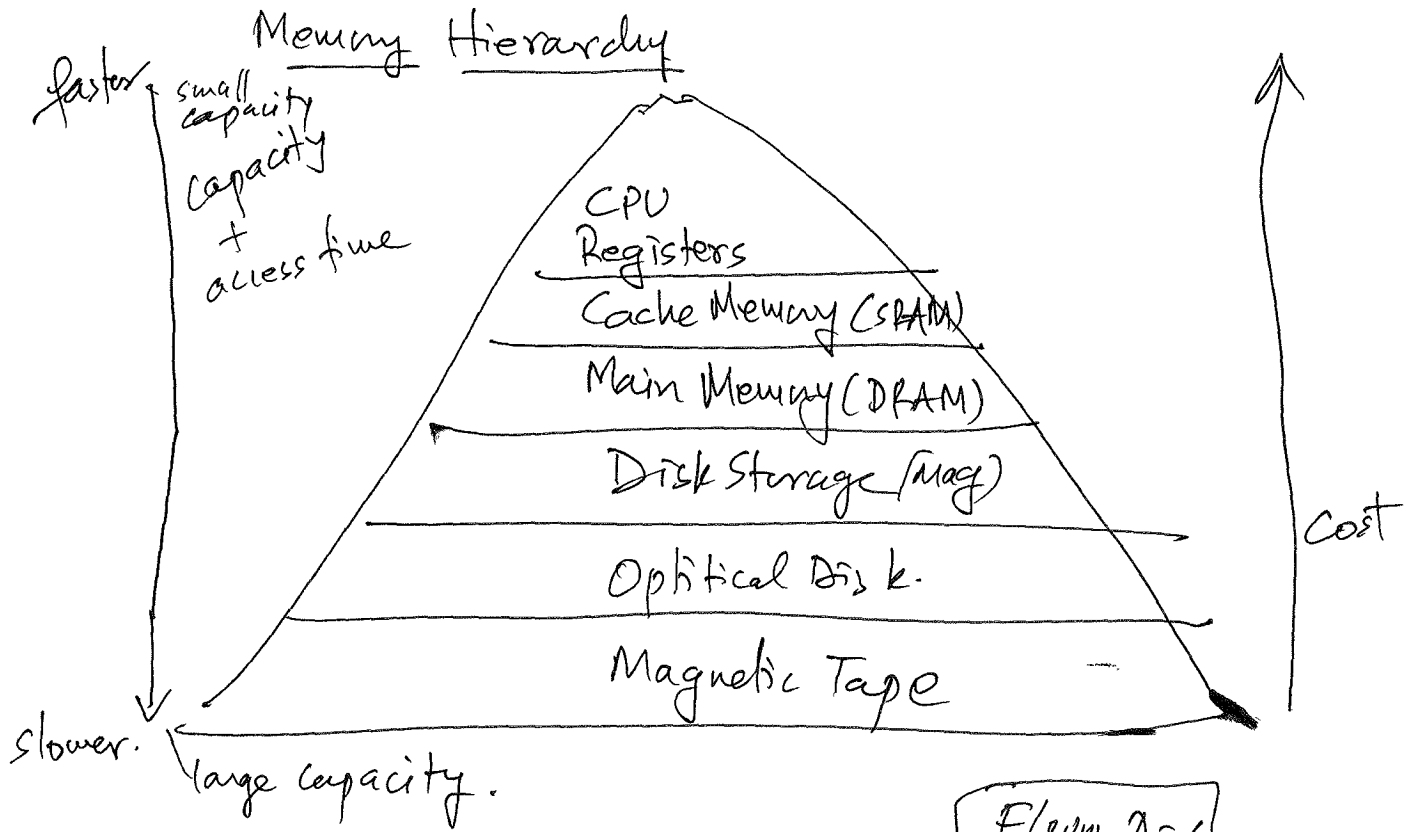 Memory Hierarchy
faster
small
capacity
capacity
+
access time
CPU
Registers
Cache Memory (SRAM)
Main Memory (DRAM)
Disk Storage (Mag)
Cost
Optitical Disk.
Magnetic Tape
slower.
large capacity.